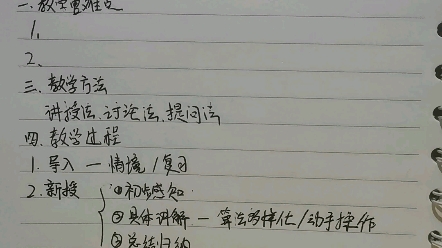 二、教学重难点
1、
2、
三、教学方法
讲授法、讨论法、提问法
四、教学过程
1. 导入 — 情境 / 复习
2. 新授 { ① 初步感知
② 具体讲解 — 算法多样化 / 动手操作
③ 总结归纳